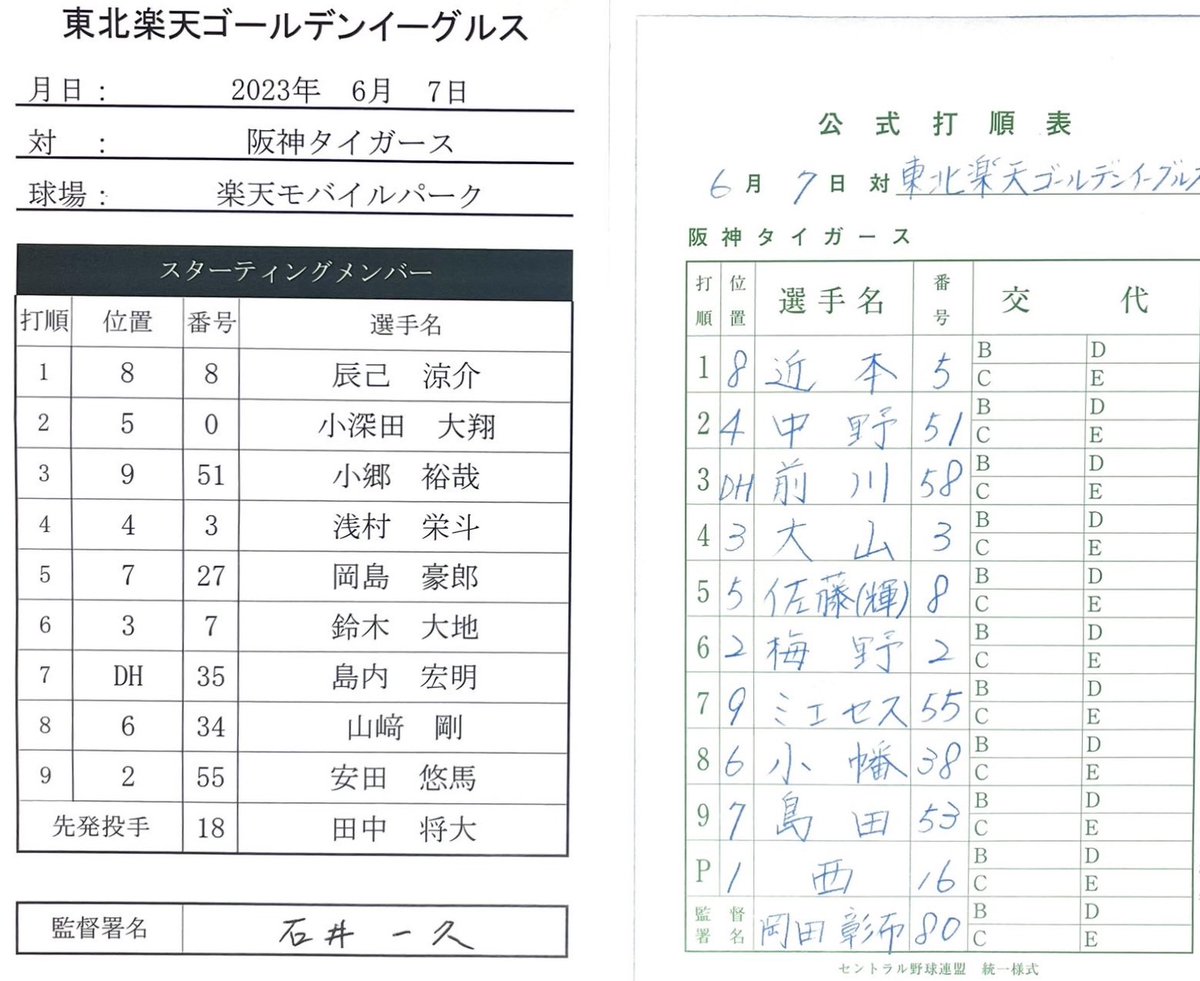 東北楽天ゴールデンイーグルス
月日： 2023年 6月 7日
対 ： 阪神タイガース
球場： 楽天モバイルパーク
スターティングメンバー
打順 位置 番号 選手名
1 8 8 辰己 涼介
2 5 0 小深田 大翔
3 9 51 小郷 裕哉
4 4 3 浅村 栄斗
5 7 27 岡島 豪郎
6 3 7 鈴木 大地
7 DH 35 島内 宏明
8 6 34 山﨑 剛
9 2 55 安田 悠馬
先発投手 18 田中 将大
監督署名 石井 一久
公式打順表
6月 7日 対 東北楽天ゴールデンイーグルス
阪神タイガース
打順 位置 選手名 番号 交代
1 8 近本 5 B D
C E
2 4 中野 51 B D
C E
3 DH 前川 58 B D
C E
4 3 大山 3 B D
C E
5 5 佐藤(輝) 8 B D
C E
6 2 梅野 2 B D
C E
7 9 ミエセス 55 B D
C E
8 6 小幡 38 B D
C E
9 7 島田 53 B D
C E
P 1 西 16 B D
C E
監督署名 岡田彰布 80 B D
C E
セントラル野球連盟 統一様式